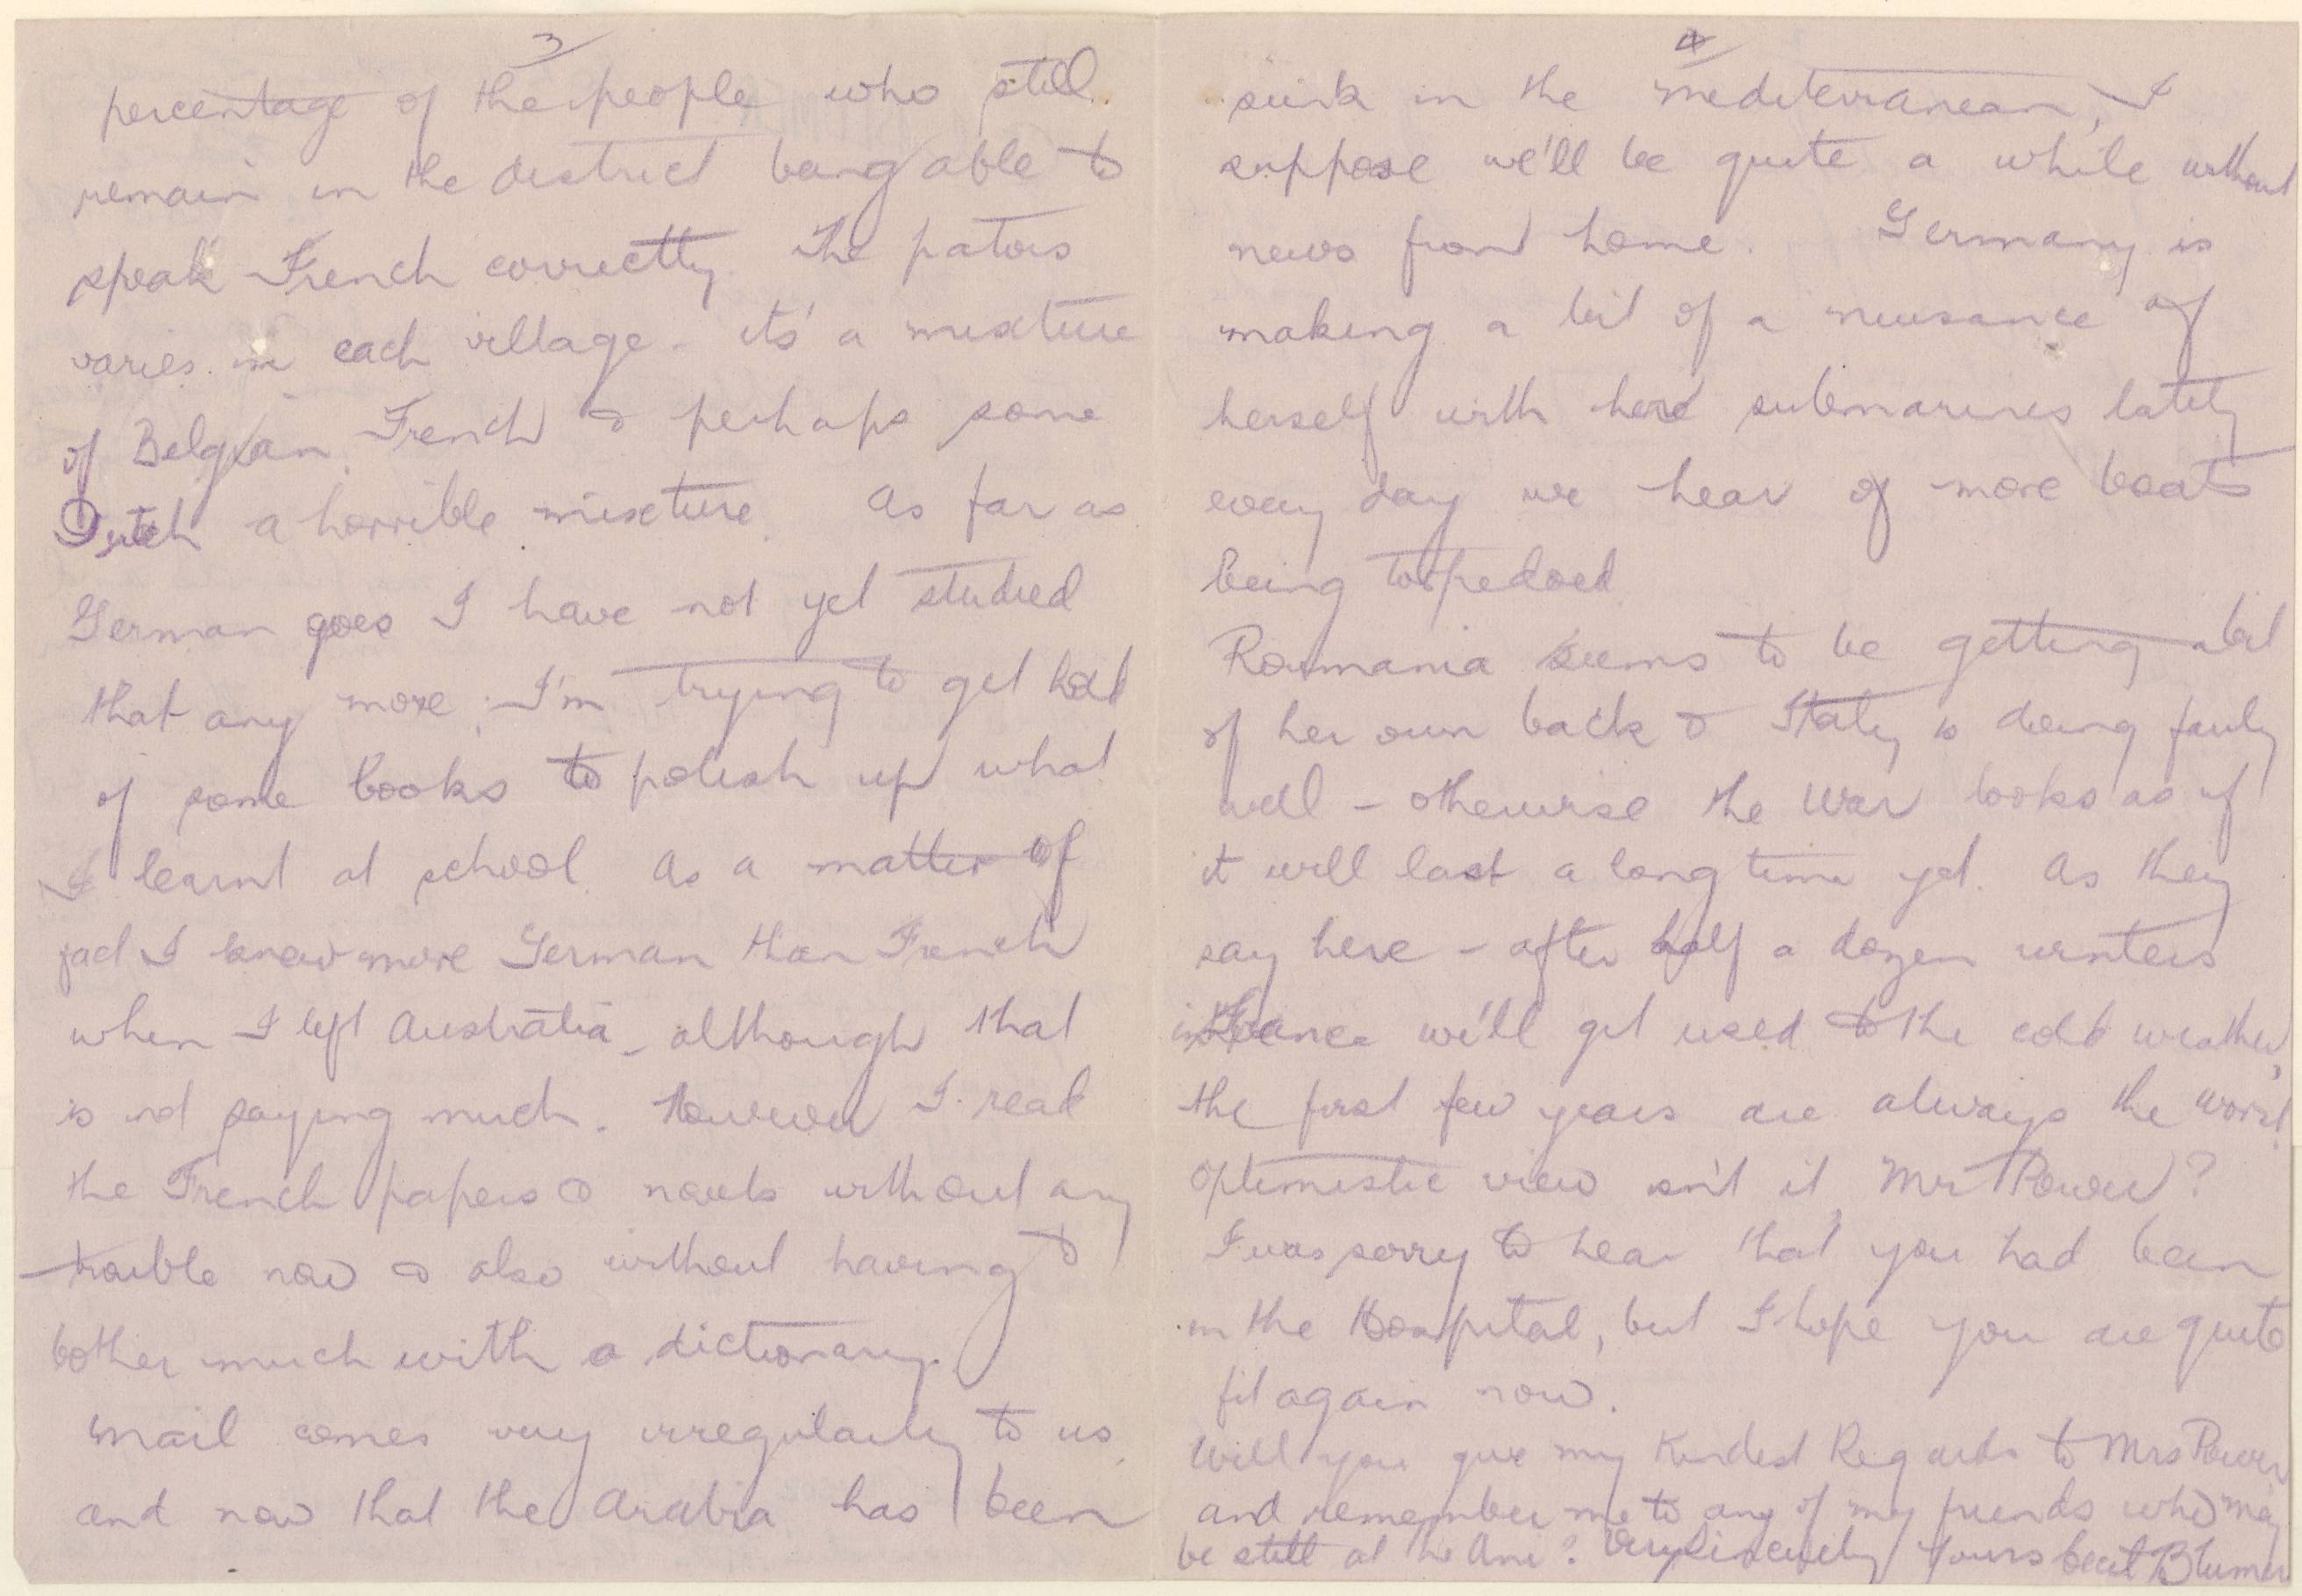 3
percentage of the people who still
remain in the district being able to
speak French correctly. The patois
varies in each village - its' a mixture
of Belgian, French & perhaps some
Dutch a horrible mixture. As far as
German goes I have not yet studied
that any more. I'm trying to get hold
of some books to polish up what
I learnt at school. As a matter of
fact I knew more German than French
when I left Australia - although that
is not saying much. However I read
the French papers & novels without any
trouble now & also without having to
bother much with a dictionary.
Mail comes very irregularly to us
and now that the Arabia has been
4
sunk in the Mediterranean, I
suppose we'll be quite a while without
news from home. Germany is
making a bit of a nuisance of
herself with her submarines lately
every day we hear of more boats
being torpedoed
Roumania seems to be getting a bit
of her own back & Italy is doing fairly
well - otherwise the War looks as if
it will last a long time yet. As they
say here - after half a dozen winters
in France we'll get used to the cold weather,
the first few years are always the worst.
Optimistic view isn't it, Mr Power?
I was sorry to hear that you had been
in the Hospital, but I hope you are quite
fit again now.
Will you give my Kindest Regards to Mrs Power
and remember me to any of my friends who may
be still at the Very Sincerely Yours Blumer